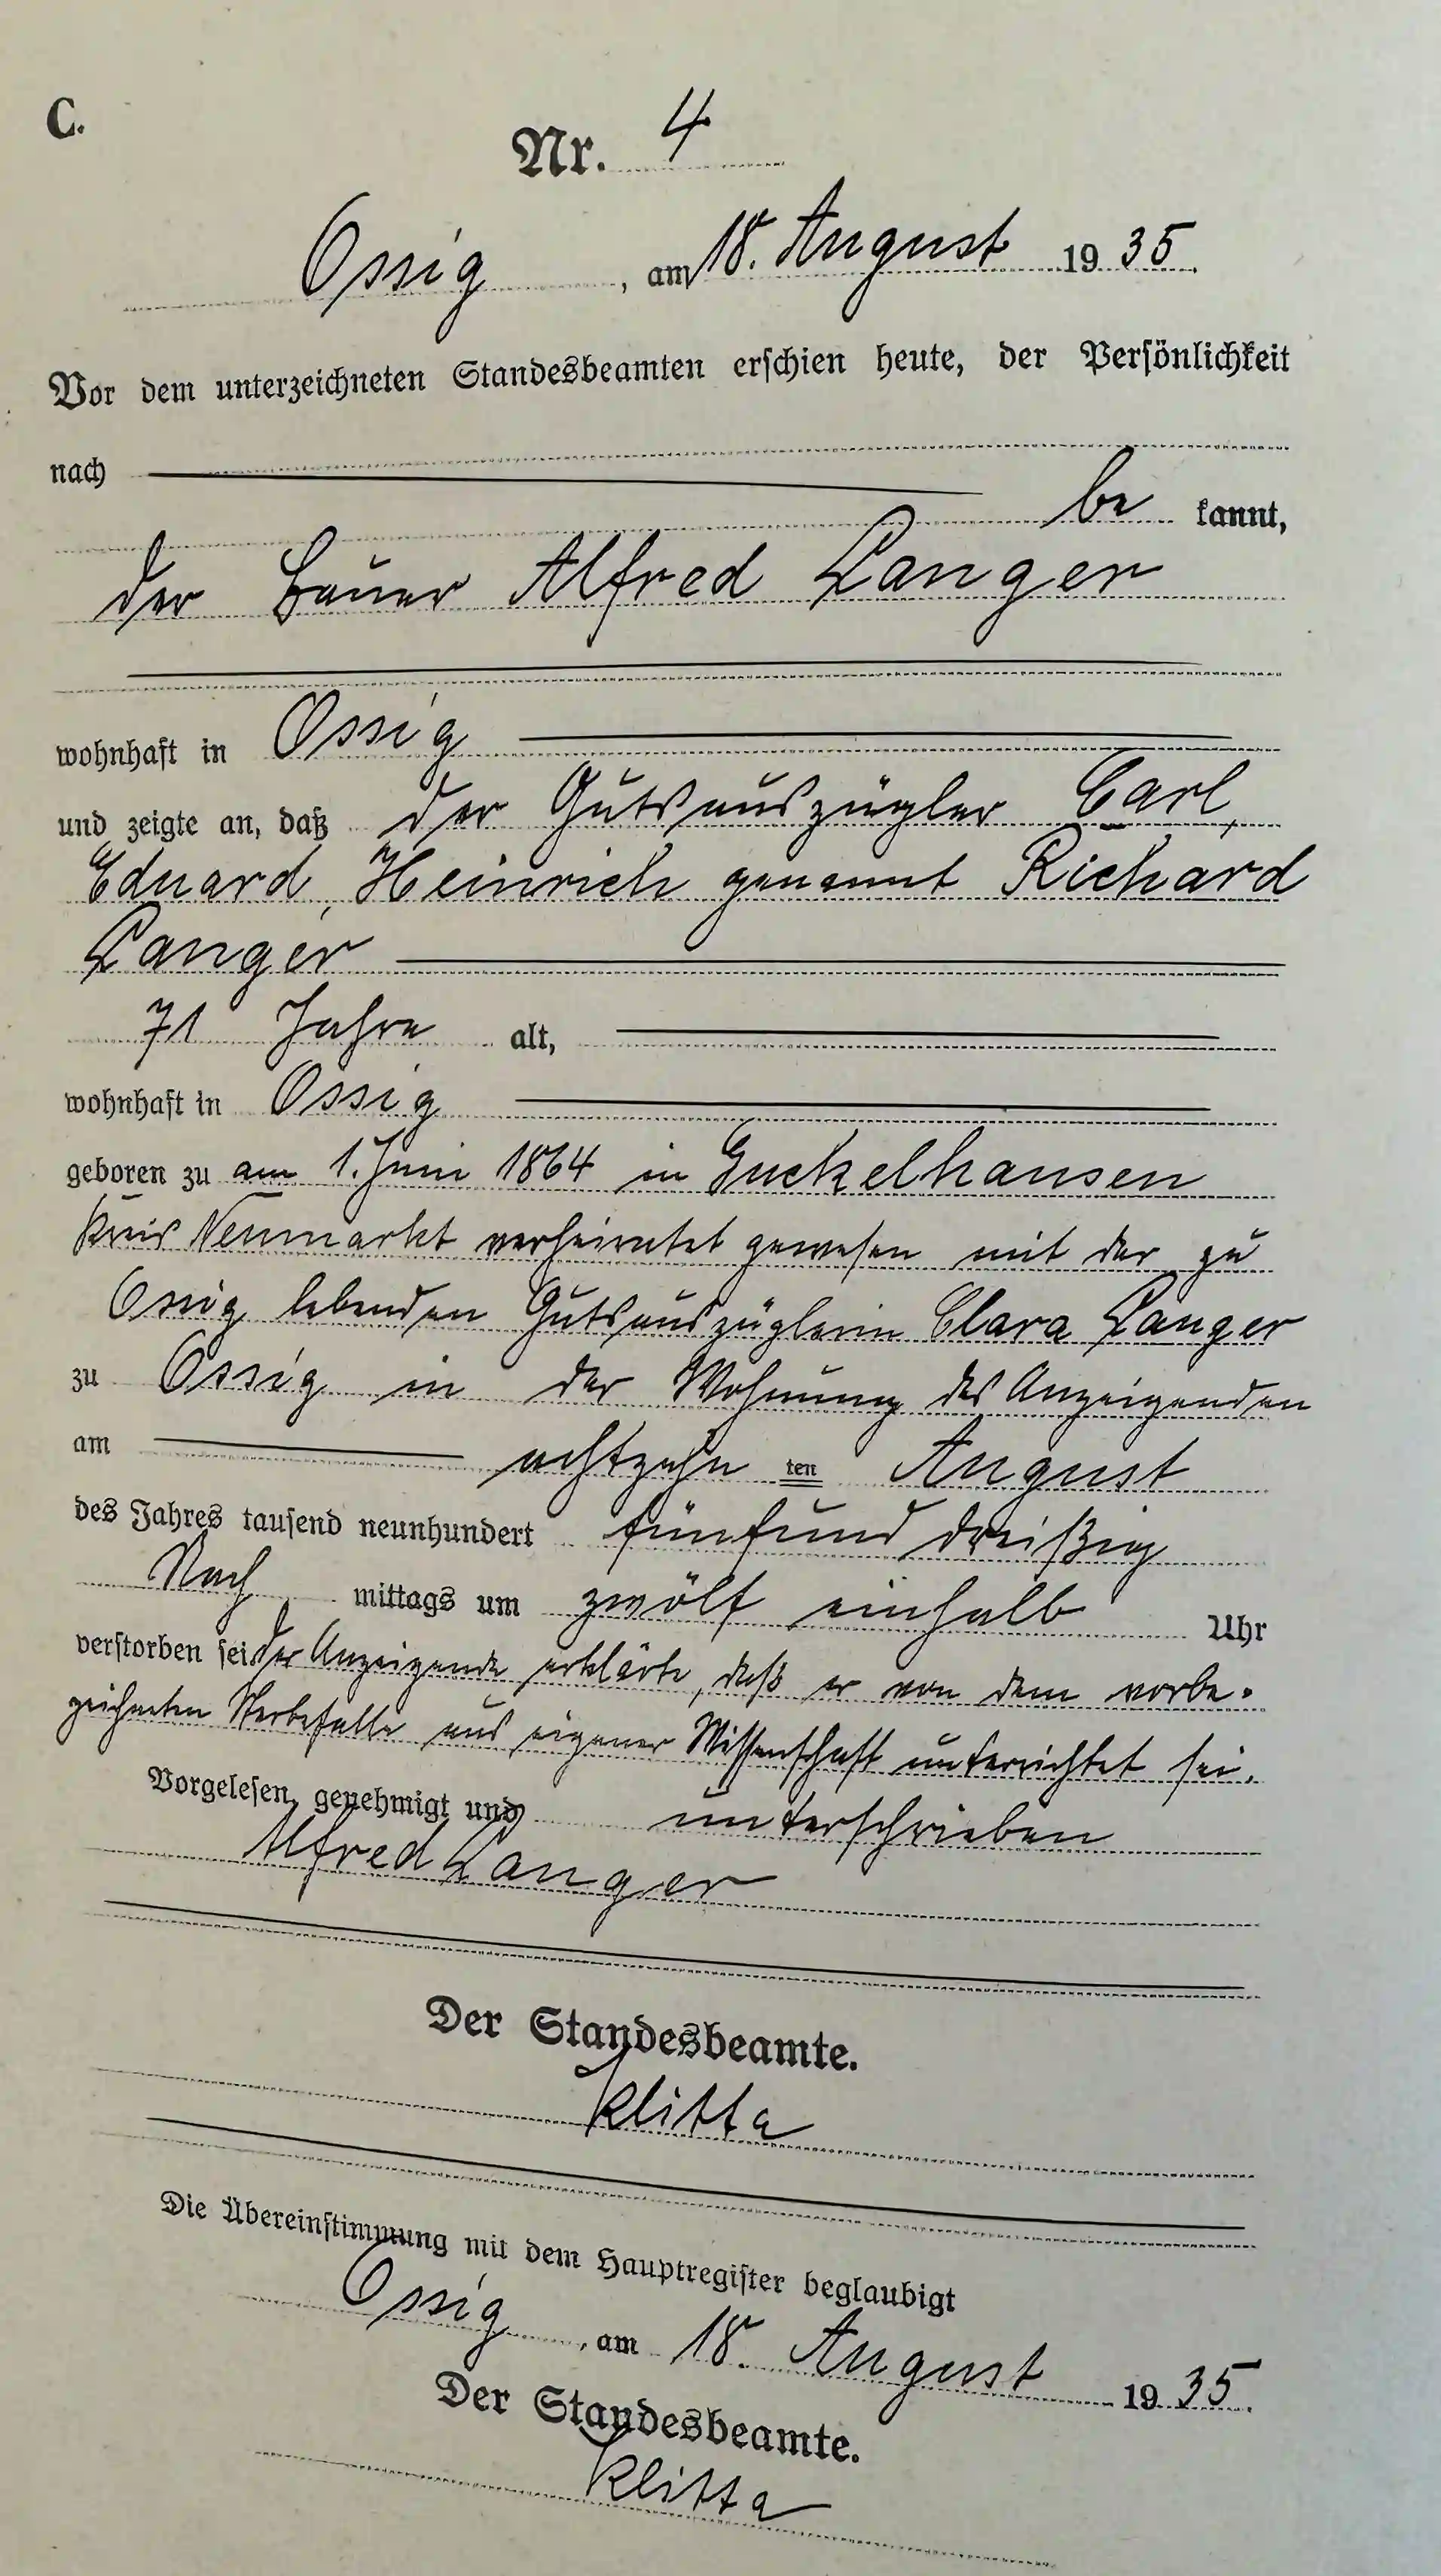 C.
Nr. 4
Ossig, am 18. August 1935.
Vor dem unterzeichneten Standesbeamten erschien heute, der Persönlichkeit
nach
be kannt,
der Bauer Alfred Langer
wohnhaft in Ossig
und zeigte an, daß der Gutsauszügler Carl,
Eduard, Heinrich genannt Richard
Langer
71 Jahre alt,
wohnhaft in Ossig
geboren zu am 1. Juni 1864 in Guckelhausen
Kreis Neumarkt verheiratet gewesen mit der zu
Ossig lebenden Gutsauszüglerin Clara Langer
zu Ossig in der Wohnung des Anzeigenden
am achtzehn ten August
des Jahres tausend neunhundert fünfund dreißig
Nach mittags um zwölf einhalb Uhr
verstorben sei. Der Anzeigende erklärte, daß er von dem vorbe-
zeichneten Sterbefalle aus eigener Wissenschaft unterrichtet sei.
Vorgelesen, genehmigt und unterschrieben
Alfred Langer
Der Standesbeamte.
Klitta
Die Übereinstimmung mit dem Hauptregister beglaubigt
Ossig, am 18. August 1935.
Der Standesbeamte.
Klitta